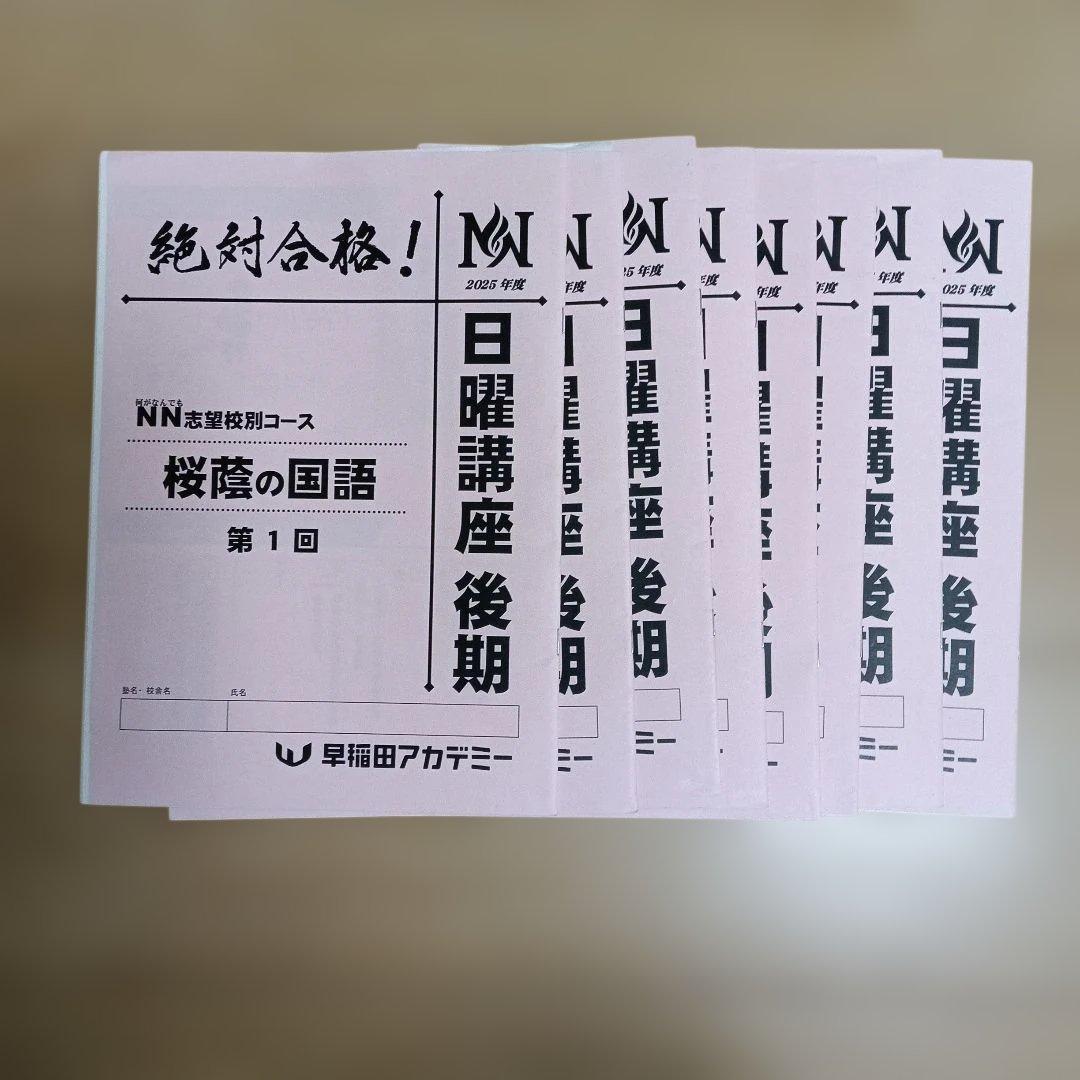 絶対合格!
NN
2025 年度
日曜講座 後期
何がなんでも
NN志望校別コース
桜蔭の国語
第 1 回
塾名・校舎名
氏名
早稲田アカデミー
N
年度
日曜講座 後期
ミー
NN
25 年度
日曜講座 後期
ミー
N
年度
N
年度
N
年度
N
年度
日曜講座 後期
ミー
NN
2025 年度
日曜講座 後期
ミー